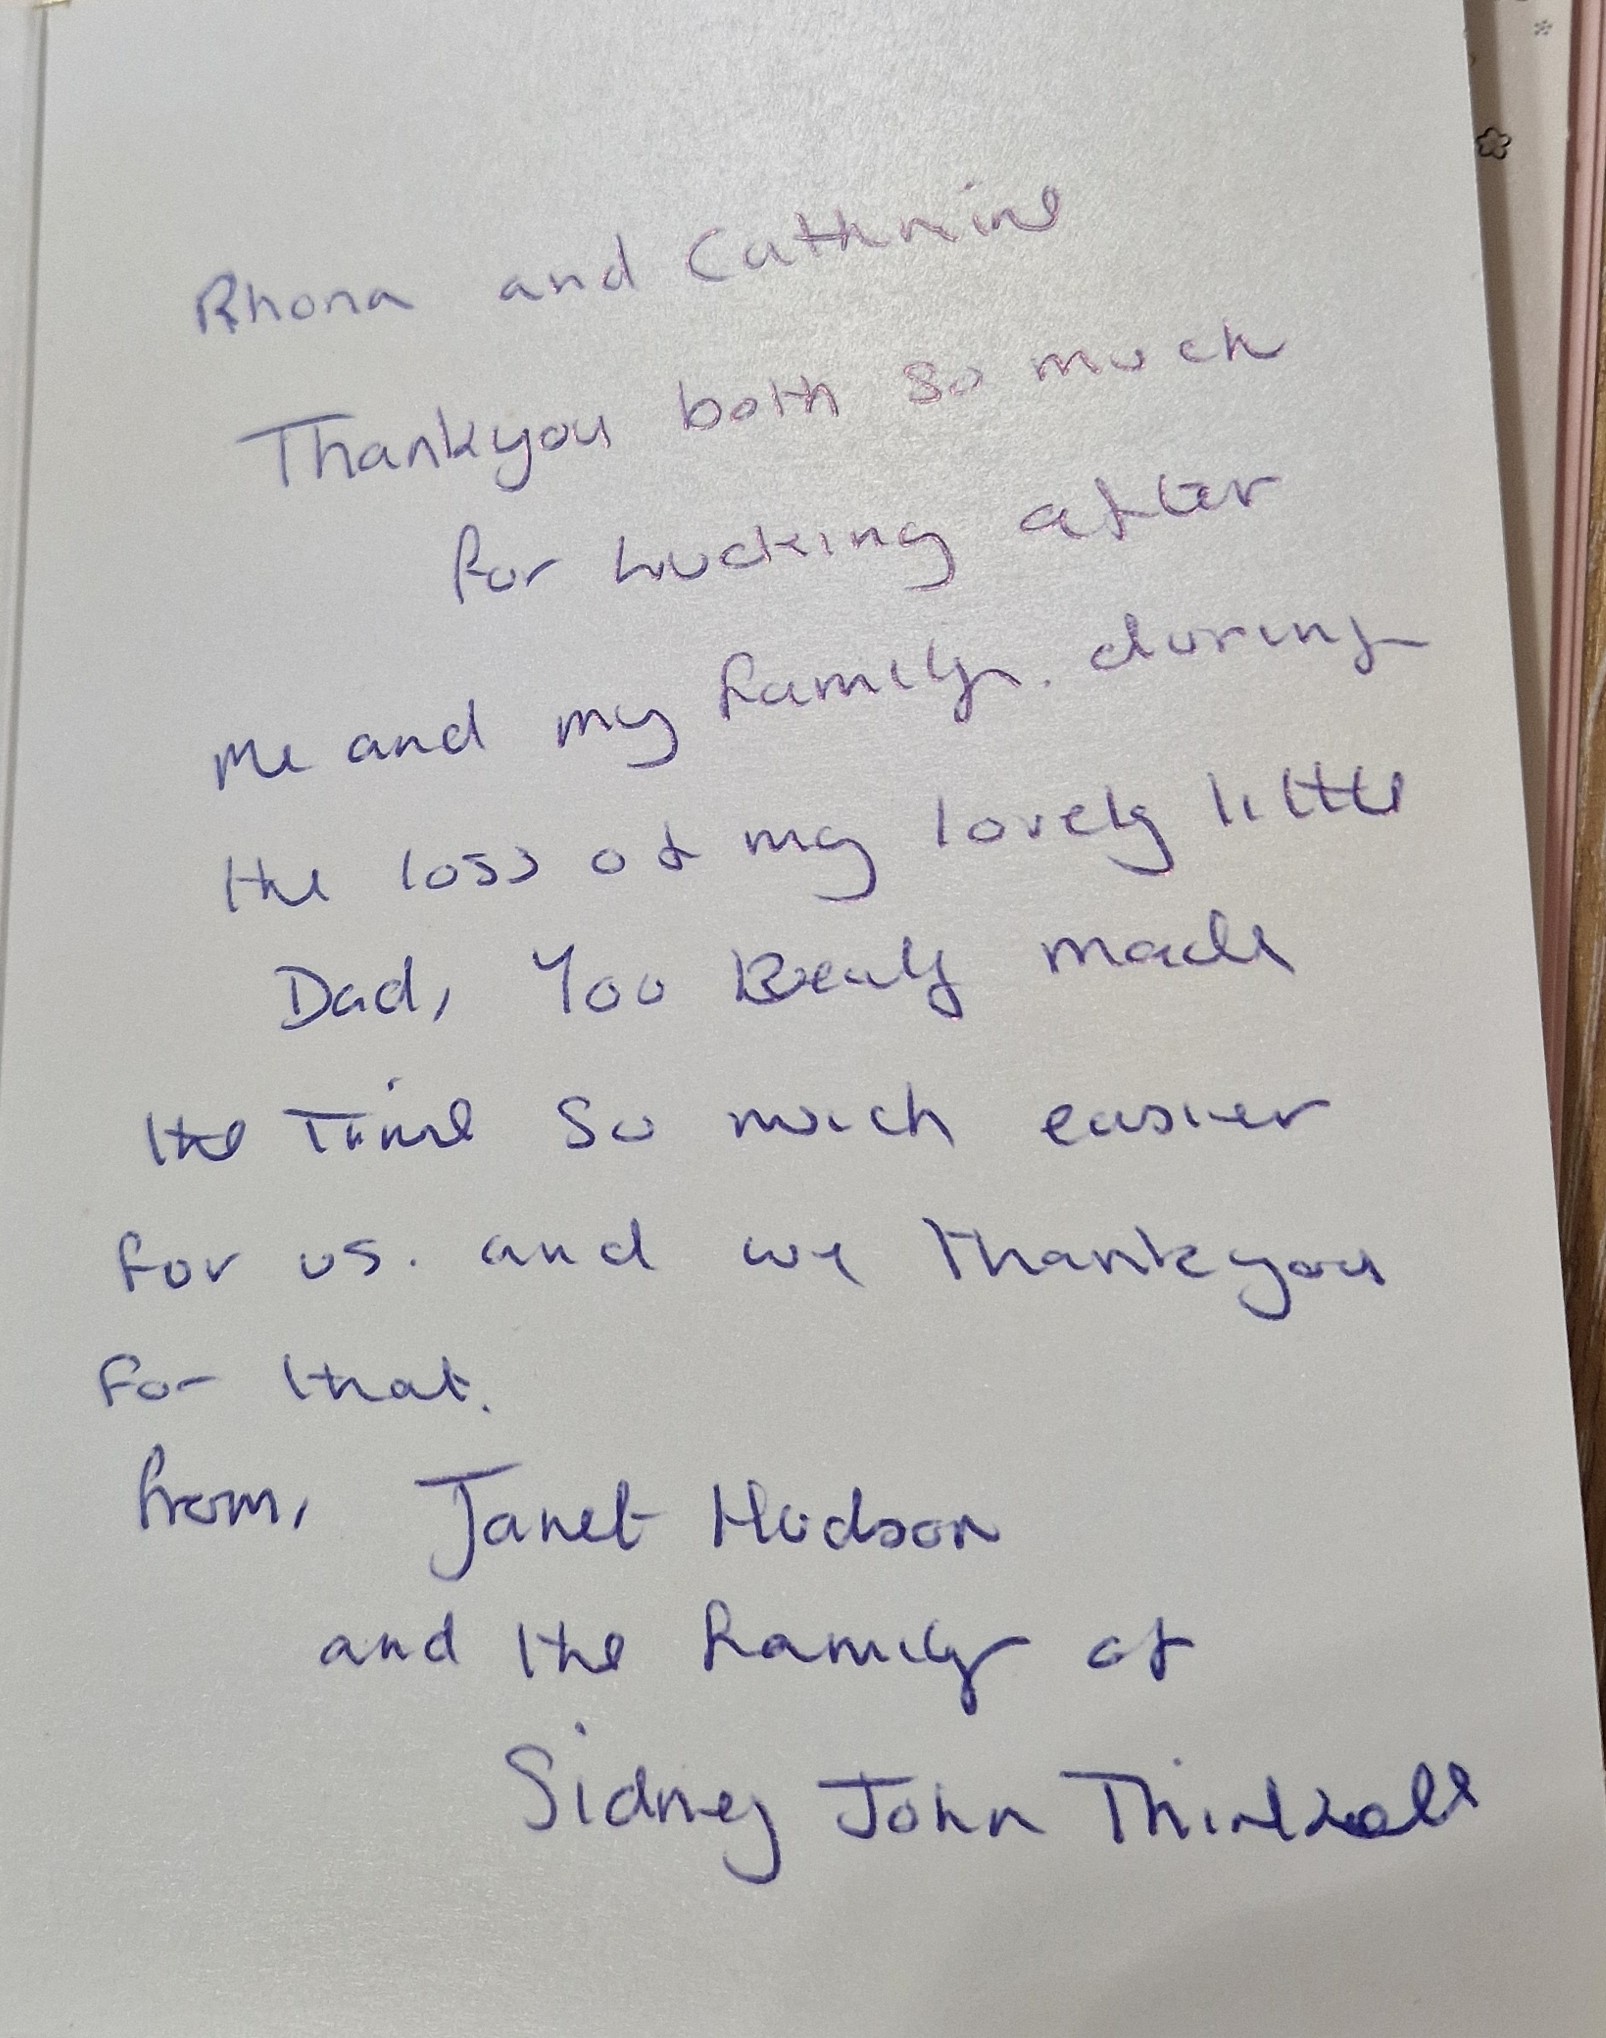 Rhona and Cathrine
Thankyou both so much
for lucking after
me and my family. during
the loss of my lovely little
Dad, You Realy made
the Time so much easier
for us. and we thankyou
for that.
from, Janet Hudson
and the family of
Sidney John